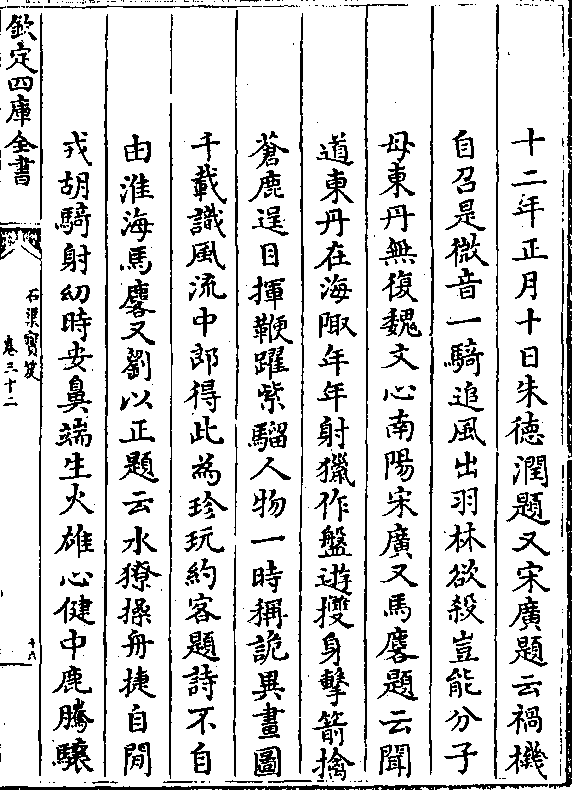 十二年正月十日朱徳潤題又宋廣題云禍機
自召是微音一騎追風出羽林欲殺豈能分子
母東丹無復魏文心南陽宋廣又馬麐題云聞
道東丹在海陬年年射獵作盤遊擭身擊箭擒
蒼鹿逞目揮鞭躍紫騮人物一時稱詭異畫圖
千載識風流中郎得此為珍玩約客題詩不自
由淮海馬麐又劉以正題云水獠操舟捷自閒
戎胡騎射幼時安鼻端生火雄心健中鹿騰驤
欽定四庫全書
石渠寶笈
卷三十二
十八